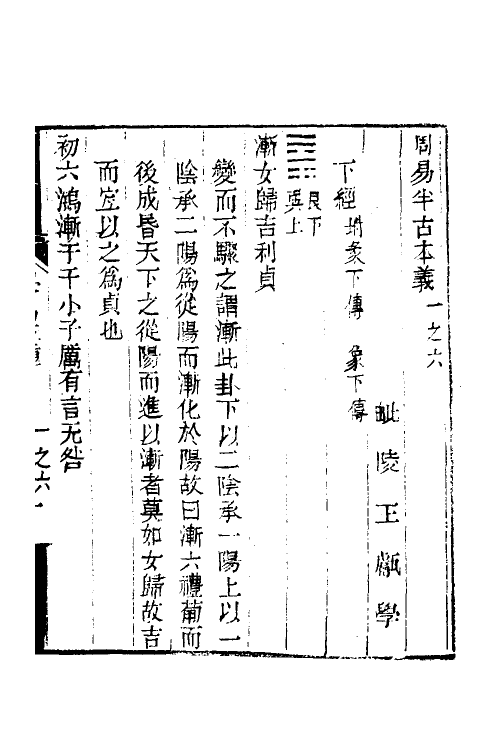 周易半古本義 一之六
毗陵王㼆學
下經 坿彖下傳 象下傳
艮下
巽上
漸女歸吉利貞
變而不驟之謂漸此卦下以二陰承一陽上以一
陰承二陽爲從陽而漸化於陽故曰漸六禮葡而
後成昏天下之從陽而進以漸者莫如女歸故吉
而宐以之爲貞也
初六鴻漸于干小子厲有言无咎
一之六一